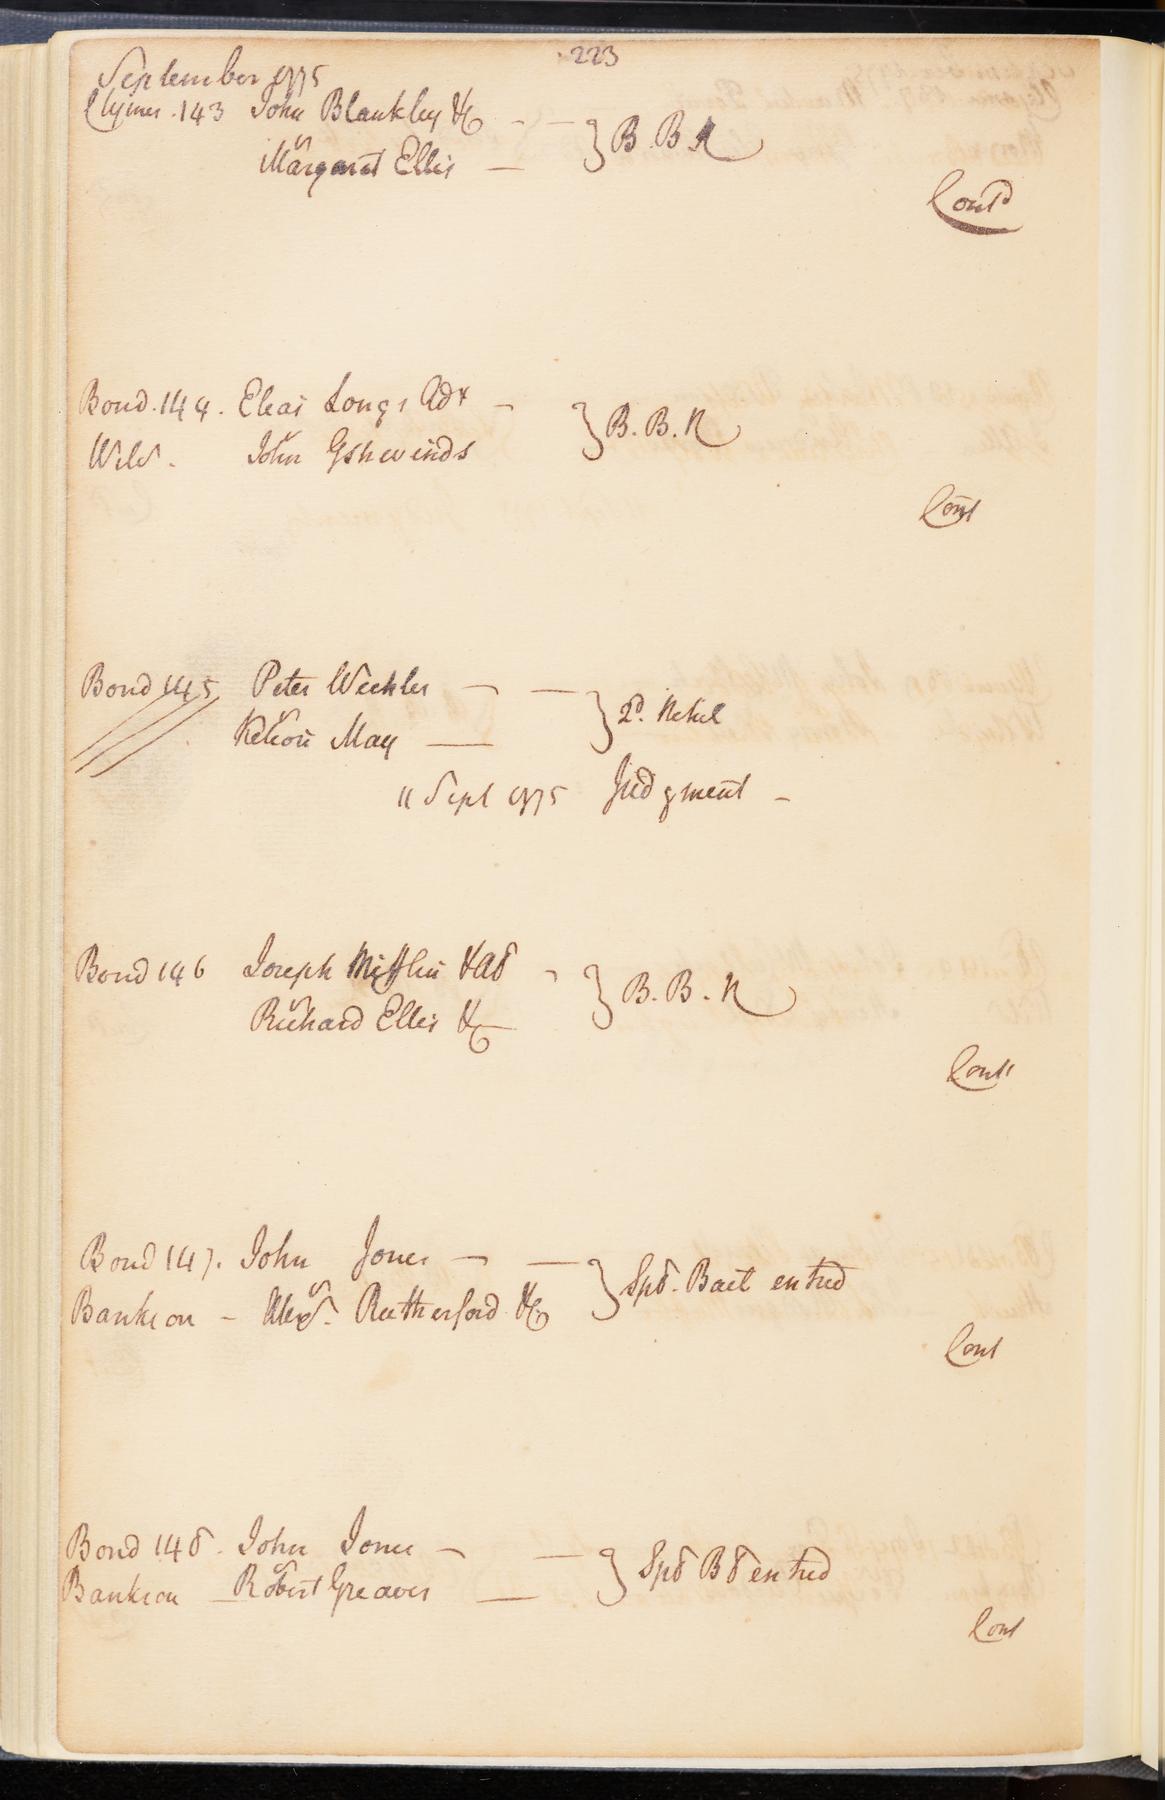 223
September 1775
Clymer . 143 John Blankley &c — — } B. B. N
v
Margaret Ellis —
Contd
Bond . 144 . Elias Longs Adx — } B. B. N
v
Wild . John Gshwinds
Cont
Bond 145 Peter Weekler — — } 2d. Nehil
v
May —
11 Sept 1775 Judgment —
Bond 146 Joseph Mifflin &ad — } B. B. N
v
Richard Ellis &c
Cont
Bond 147 . John Jones — — } Spd. Bail entred
v
Bankson — Alexr. Rutherford &c
Cont
Bond 148 . John Jones — — } Spd Bd entred
v
Bankson — Robert Greaves —
Cont